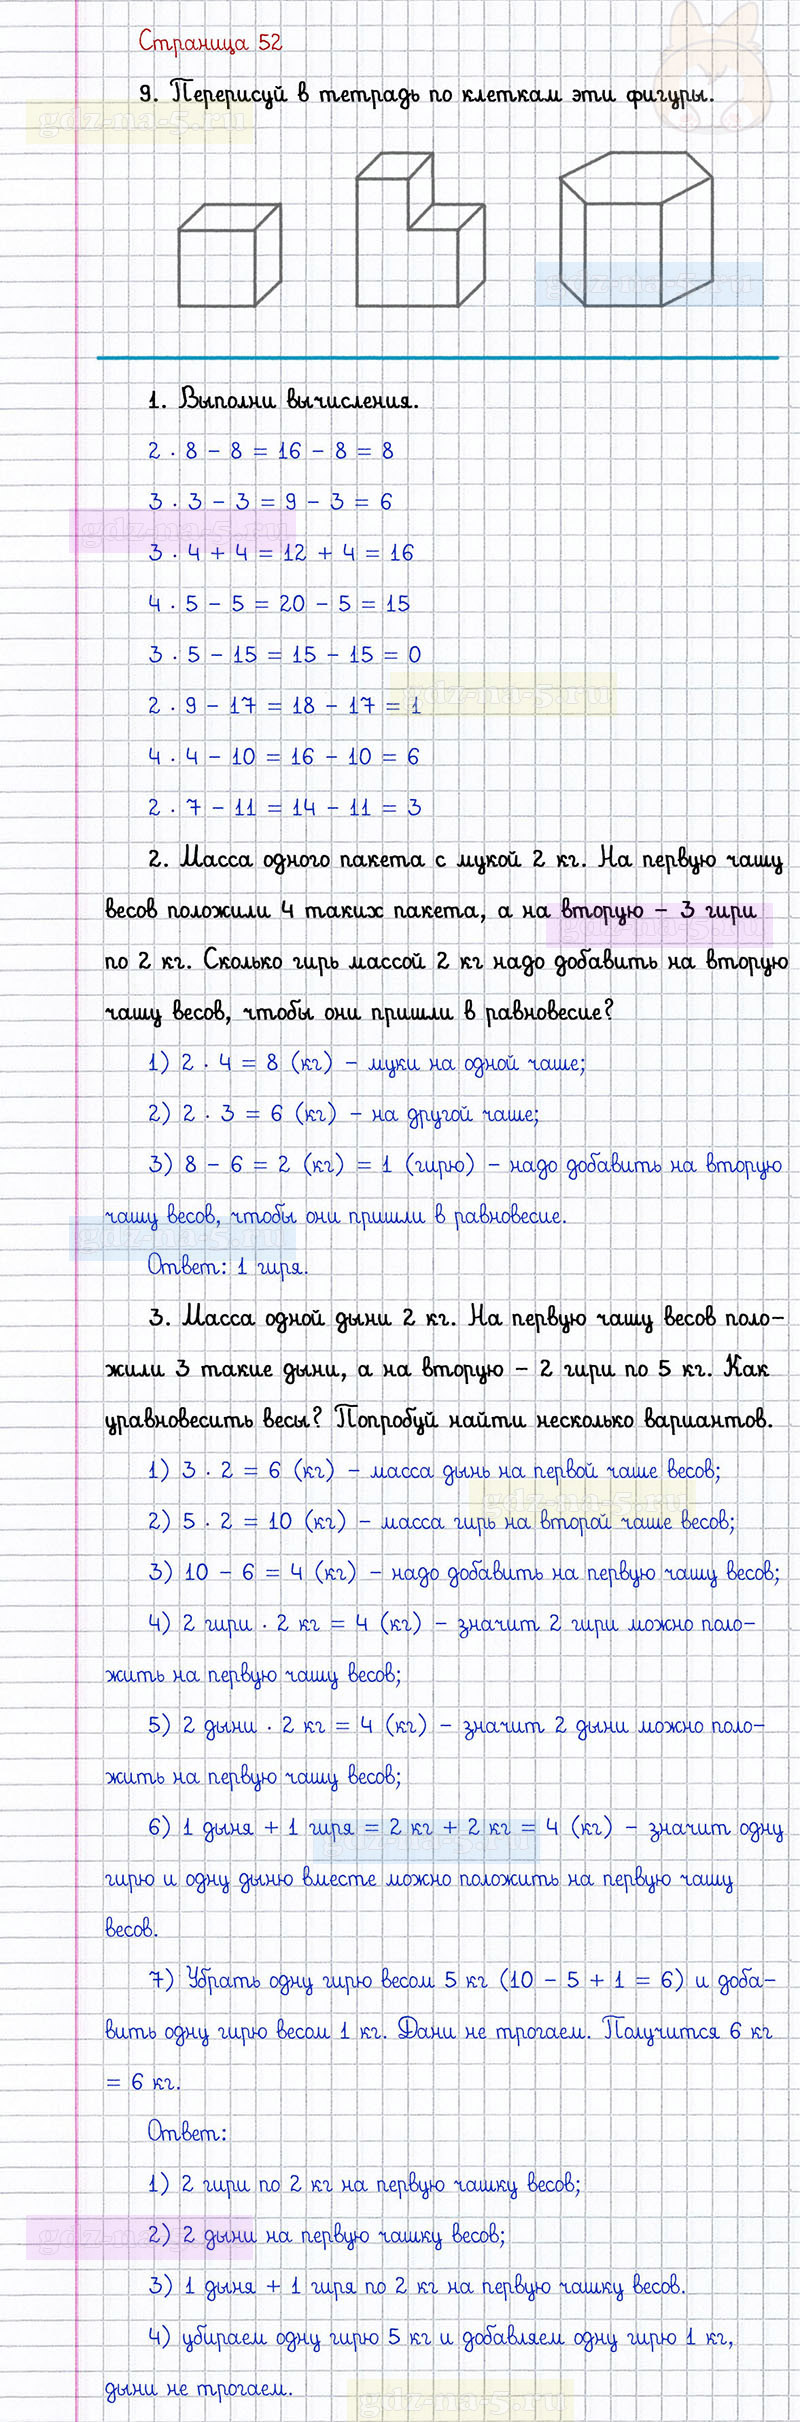 Страница 52
9. Перерисуй в тетрадь по клеткам эти фигуры.
gdz-na-5.ru
gdz-na-5.ru
1. Выполни вычисления.
2 · 8 – 8 = 16 – 8 = 8
3 · 3 – 3 = 9 – 3 = 6
gdz-na-5.ru
3 · 4 + 4 = 12 + 4 = 16
4 · 5 – 5 = 20 – 5 = 15
3 · 5 – 15 = 15 – 15 = 0
gdz-na-5.ru
2 · 9 – 17 = 18 – 17 = 1
4 · 4 – 10 = 16 – 10 = 6
2 · 7 – 11 = 14 – 11 = 3
2. Масса одного пакета с мукой 2 кг. На первую чашу
весов положили 4 таких пакета, а на вторую – 3 гири
gdz-na-5.ru
по 2 кг. Сколько гирь массой 2 кг надо добавить на вторую
чашу весов, чтобы они пришли в равновесие?
1) 2 · 4 = 8 (кг) – муки на одной чаше;
2) 2 · 3 = 6 (кг) – на другой чаше;
3) 8 – 6 = 2 (кг) = 1 (гирю) – надо добавить на вторую
чашу весов, чтобы они пришли в равновесие.
gdz-na-5.ru
Ответ: 1 гиря.
3. Масса одной дыни 2 кг. На первую чашу весов поло-
жили 3 такие дыни, а на вторую – 2 гири по 5 кг. Как
уравновесить весы? Попробуй найти несколько вариантов.
1) 3 · 2 = 6 (кг) – масса дынь на первой чаше весов;
gdz-na-5.ru
2) 5 · 2 = 10 (кг) – масса гирь на второй чаше весов;
3) 10 – 6 = 4 (кг) – надо добавить на первую чашу весов;
4) 2 гири · 2 кг = 4 (кг) – значит 2 гири можно поло-
жить на первую чашу весов;
5) 2 дыни · 2 кг = 4 (кг) – значит 2 дыни можно поло-
жить на первую чашу весов;
6) 1 дыня + 1 гиря = 2 кг + 2 кг = 4 (кг) – значит одну
gdz-na-5.ru
гирю и одну дыню вместе можно положить на первую чашу
весов.
7) Убрать одну гирю весом 5 кг (10 – 5 + 1 = 6) и доба-
вить одну гирю весом 1 кг. Дани не трогаем. Получится 6 кг
= 6 кг.
Ответ:
1) 2 гири по 2 кг на первую чашку весов;
2) 2 дыни на первую чашку весов;
gdz-na-5.ru
3) 1 дыня + 1 гиря по 2 кг на первую чашку весов.
4) убираем одну гирю 5 кг и добавляем одну гирю 1 кг,
дыни не трогаем.
gdz-na-5.ru